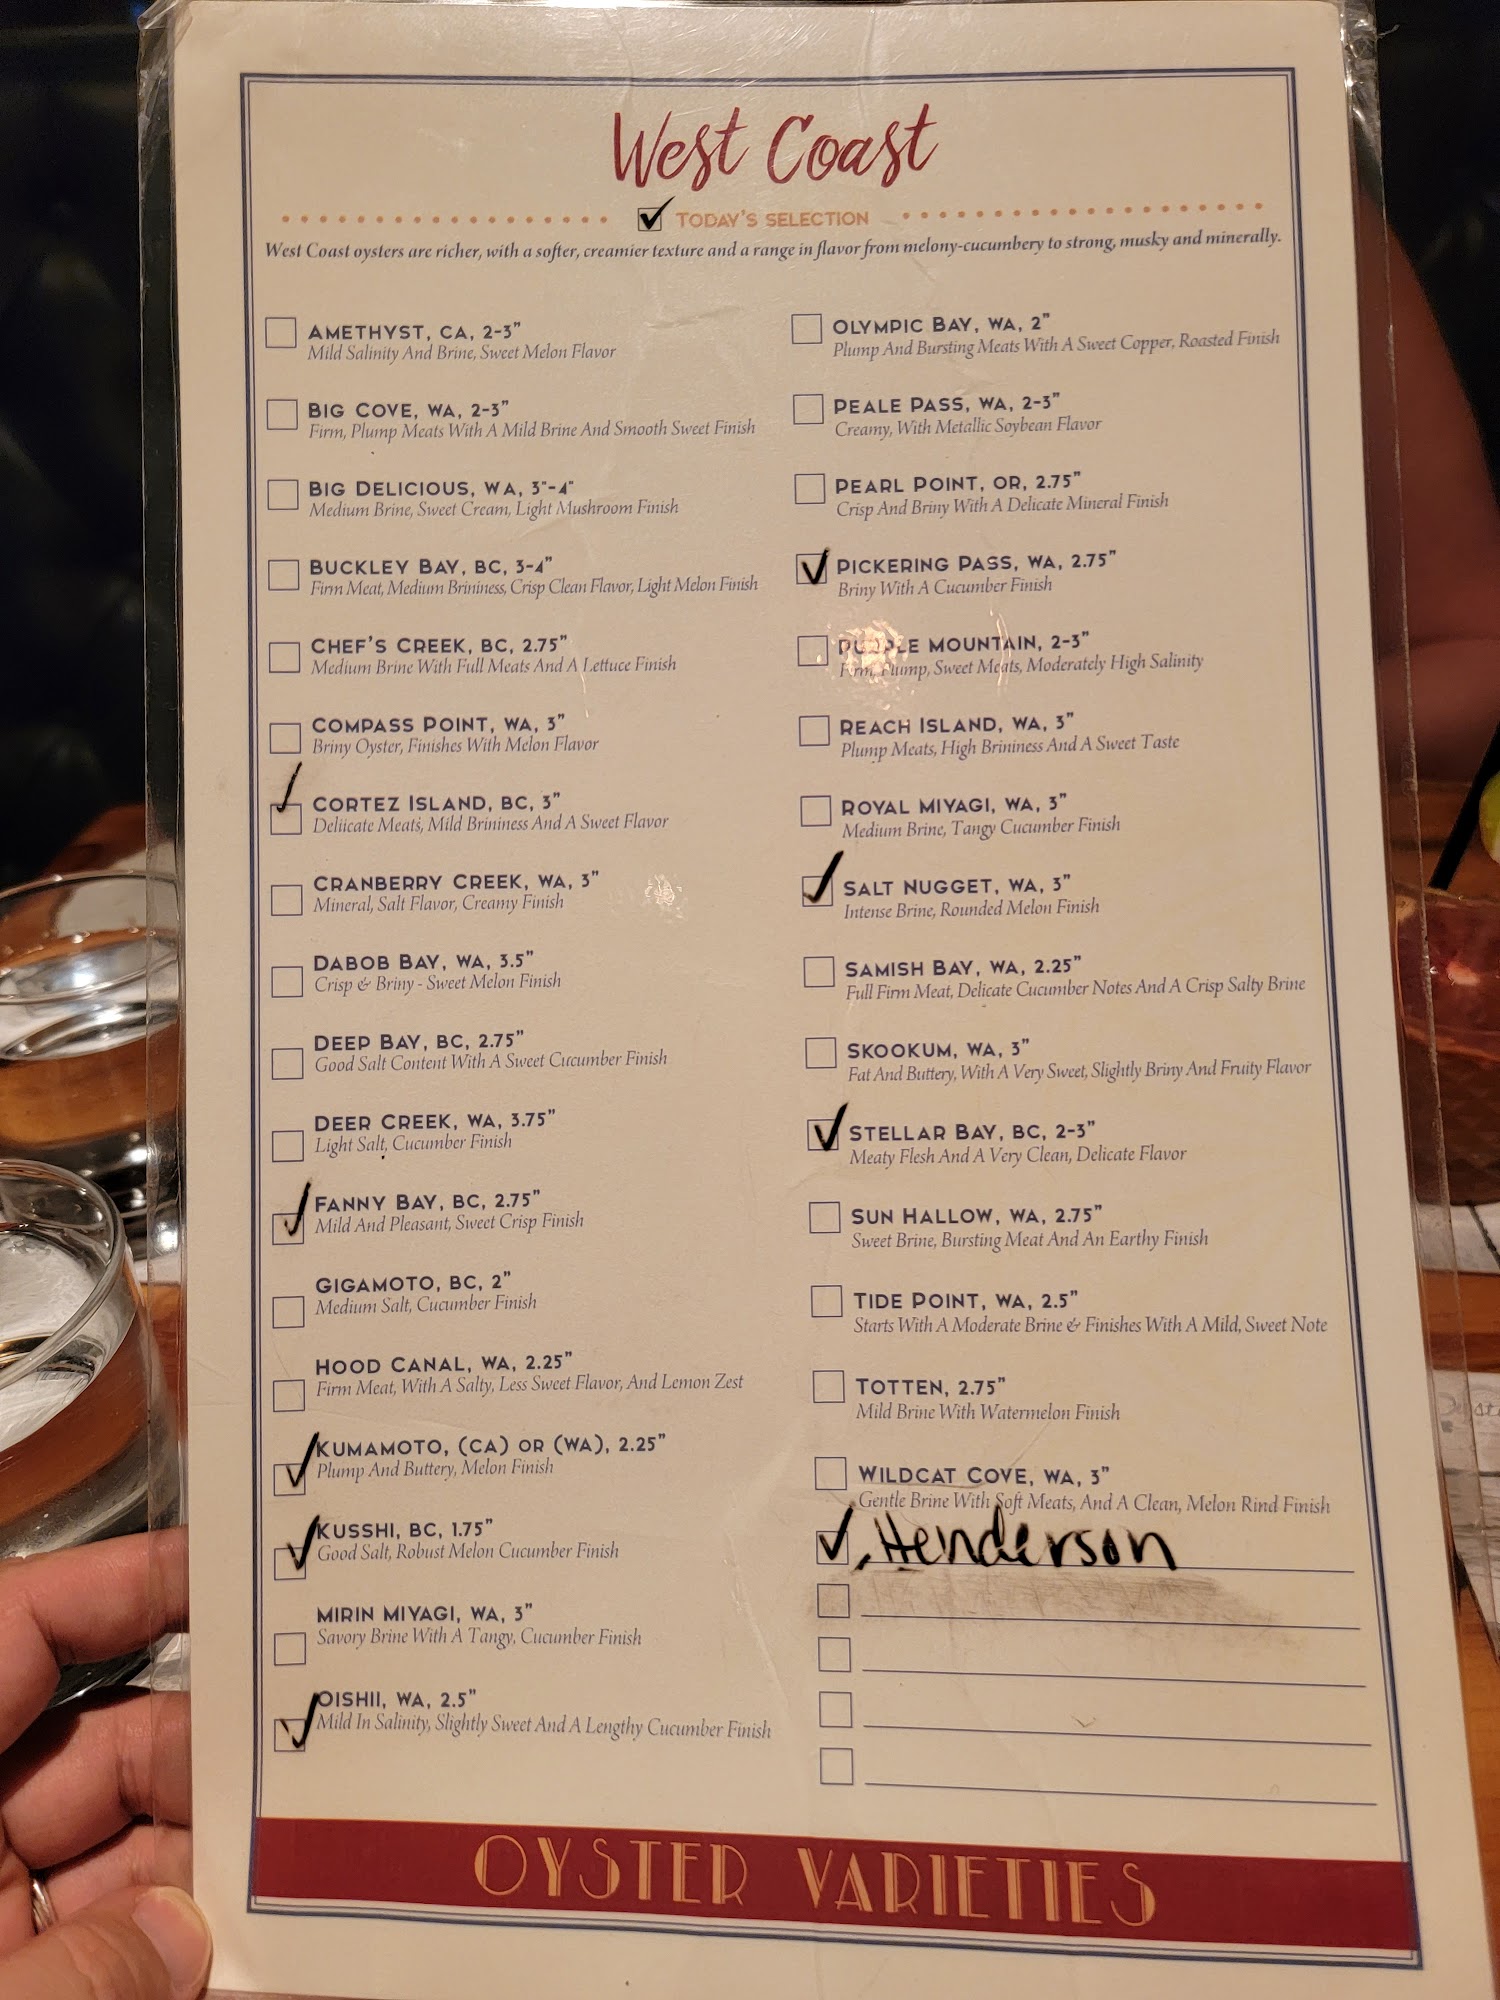 West Coast
TODAY'S SELECTION
West Coast oysters are richer, with a softer, creamier texture and a range in flavor from melony-cucumbery to strong, musky and minerally.
AMETHYST, CA, 2-3"
Mild Salinity And Brine, Sweet Melon Flavor
BIG COVE, WA, 2-3"
Firm, Plump Meats With A Mild Brine And Smooth Sweet Finish
BIG DELICIOUS, WA, 3"-4"
Medium Brine, Sweet Cream, Light Mushroom Finish
BUCKLEY BAY, BC, 3-4"
Firm Meat, Medium Brininess, Crisp Clean Flavor, Light Melon Finish
CHEF'S CREEK, BC, 2.75"
Medium Brine With Full Meats And A Lettuce Finish
COMPASS POINT, WA, 3"
Briny Oyster, Finishes With Melon Flavor
CORTEZ ISLAND, BC, 3"
Deliicate Meats, Mild Brininess And A Sweet Flavor
CRANBERRY CREEK, WA, 3"
Mineral, Salt Flavor, Creamy Finish
DABOB BAY, WA, 3.5"
Crisp & Briny - Sweet Melon Finish
DEEP BAY, BC, 2.75"
Good Salt Content With A Sweet Cucumber Finish
DEER CREEK, WA, 3.75"
Light Salt, Cucumber Finish
FANNY BAY, BC, 2.75"
Mild And Pleasant, Sweet Crisp Finish
GIGAMOTO, BC, 2"
Medium Salt, Cucumber Finish
HOOD CANAL, WA, 2.25"
Firm Meat, With A Salty, Less Sweet Flavor, And Lemon Zest
KUMAMOTO, (CA) OR (WA), 2.25"
Plump And Buttery, Melon Finish
KUSSHI, BC, 1.75"
Good Salt, Robust Melon Cucumber Finish
MIRIN MIYAGI, WA, 3"
Savory Brine With A Tangy, Cucumber Finish
OISHII, WA, 2.5"
Mild In Salinity, Slightly Sweet And A Lengthy Cucumber Finish
OLYMPIC BAY, WA, 2"
Plump And Bursting Meats With A Sweet Copper, Roasted Finish
PEALE PASS, WA, 2-3"
Creamy, With Metallic Soybean Flavor
PEARL POINT, OR, 2.75"
Crisp And Briny With A Delicate Mineral Finish
PICKERING PASS, WA, 2.75"
Briny With A Cucumber Finish
PURPLE MOUNTAIN, 2-3"
Firm, Plump, Sweet Meats, Moderately High Salinity
REACH ISLAND, WA, 3"
Plump Meats, High Brininess And A Sweet Taste
ROYAL MIYAGI, WA, 3"
Medium Brine, Tangy Cucumber Finish
SALT NUGGET, WA, 3"
Intense Brine, Rounded Melon Finish
SAMISH BAY, WA, 2.25"
Full Firm Meat, Delicate Cucumber Notes And A Crisp Salty Brine
SKOOKUM, WA, 3"
Fat And Buttery, With A Very Sweet, Slightly Briny And Fruity Flavor
STELLAR BAY, BC, 2-3"
Meaty Flesh And A Very Clean, Delicate Flavor
SUN HALLOW, WA, 2.75"
Sweet Brine, Bursting Meat And An Earthy Finish
TIDE POINT, WA, 2.5"
Starts With A Moderate Brine & Finishes With A Mild, Sweet Note
TOTTEN, 2.75"
Mild Brine With Watermelon Finish
WILDCAT COVE, WA, 3"
Gentle Brine With Soft Meats, And A Clean, Melon Rind Finish
Henderson
OYSTER VARIETIES